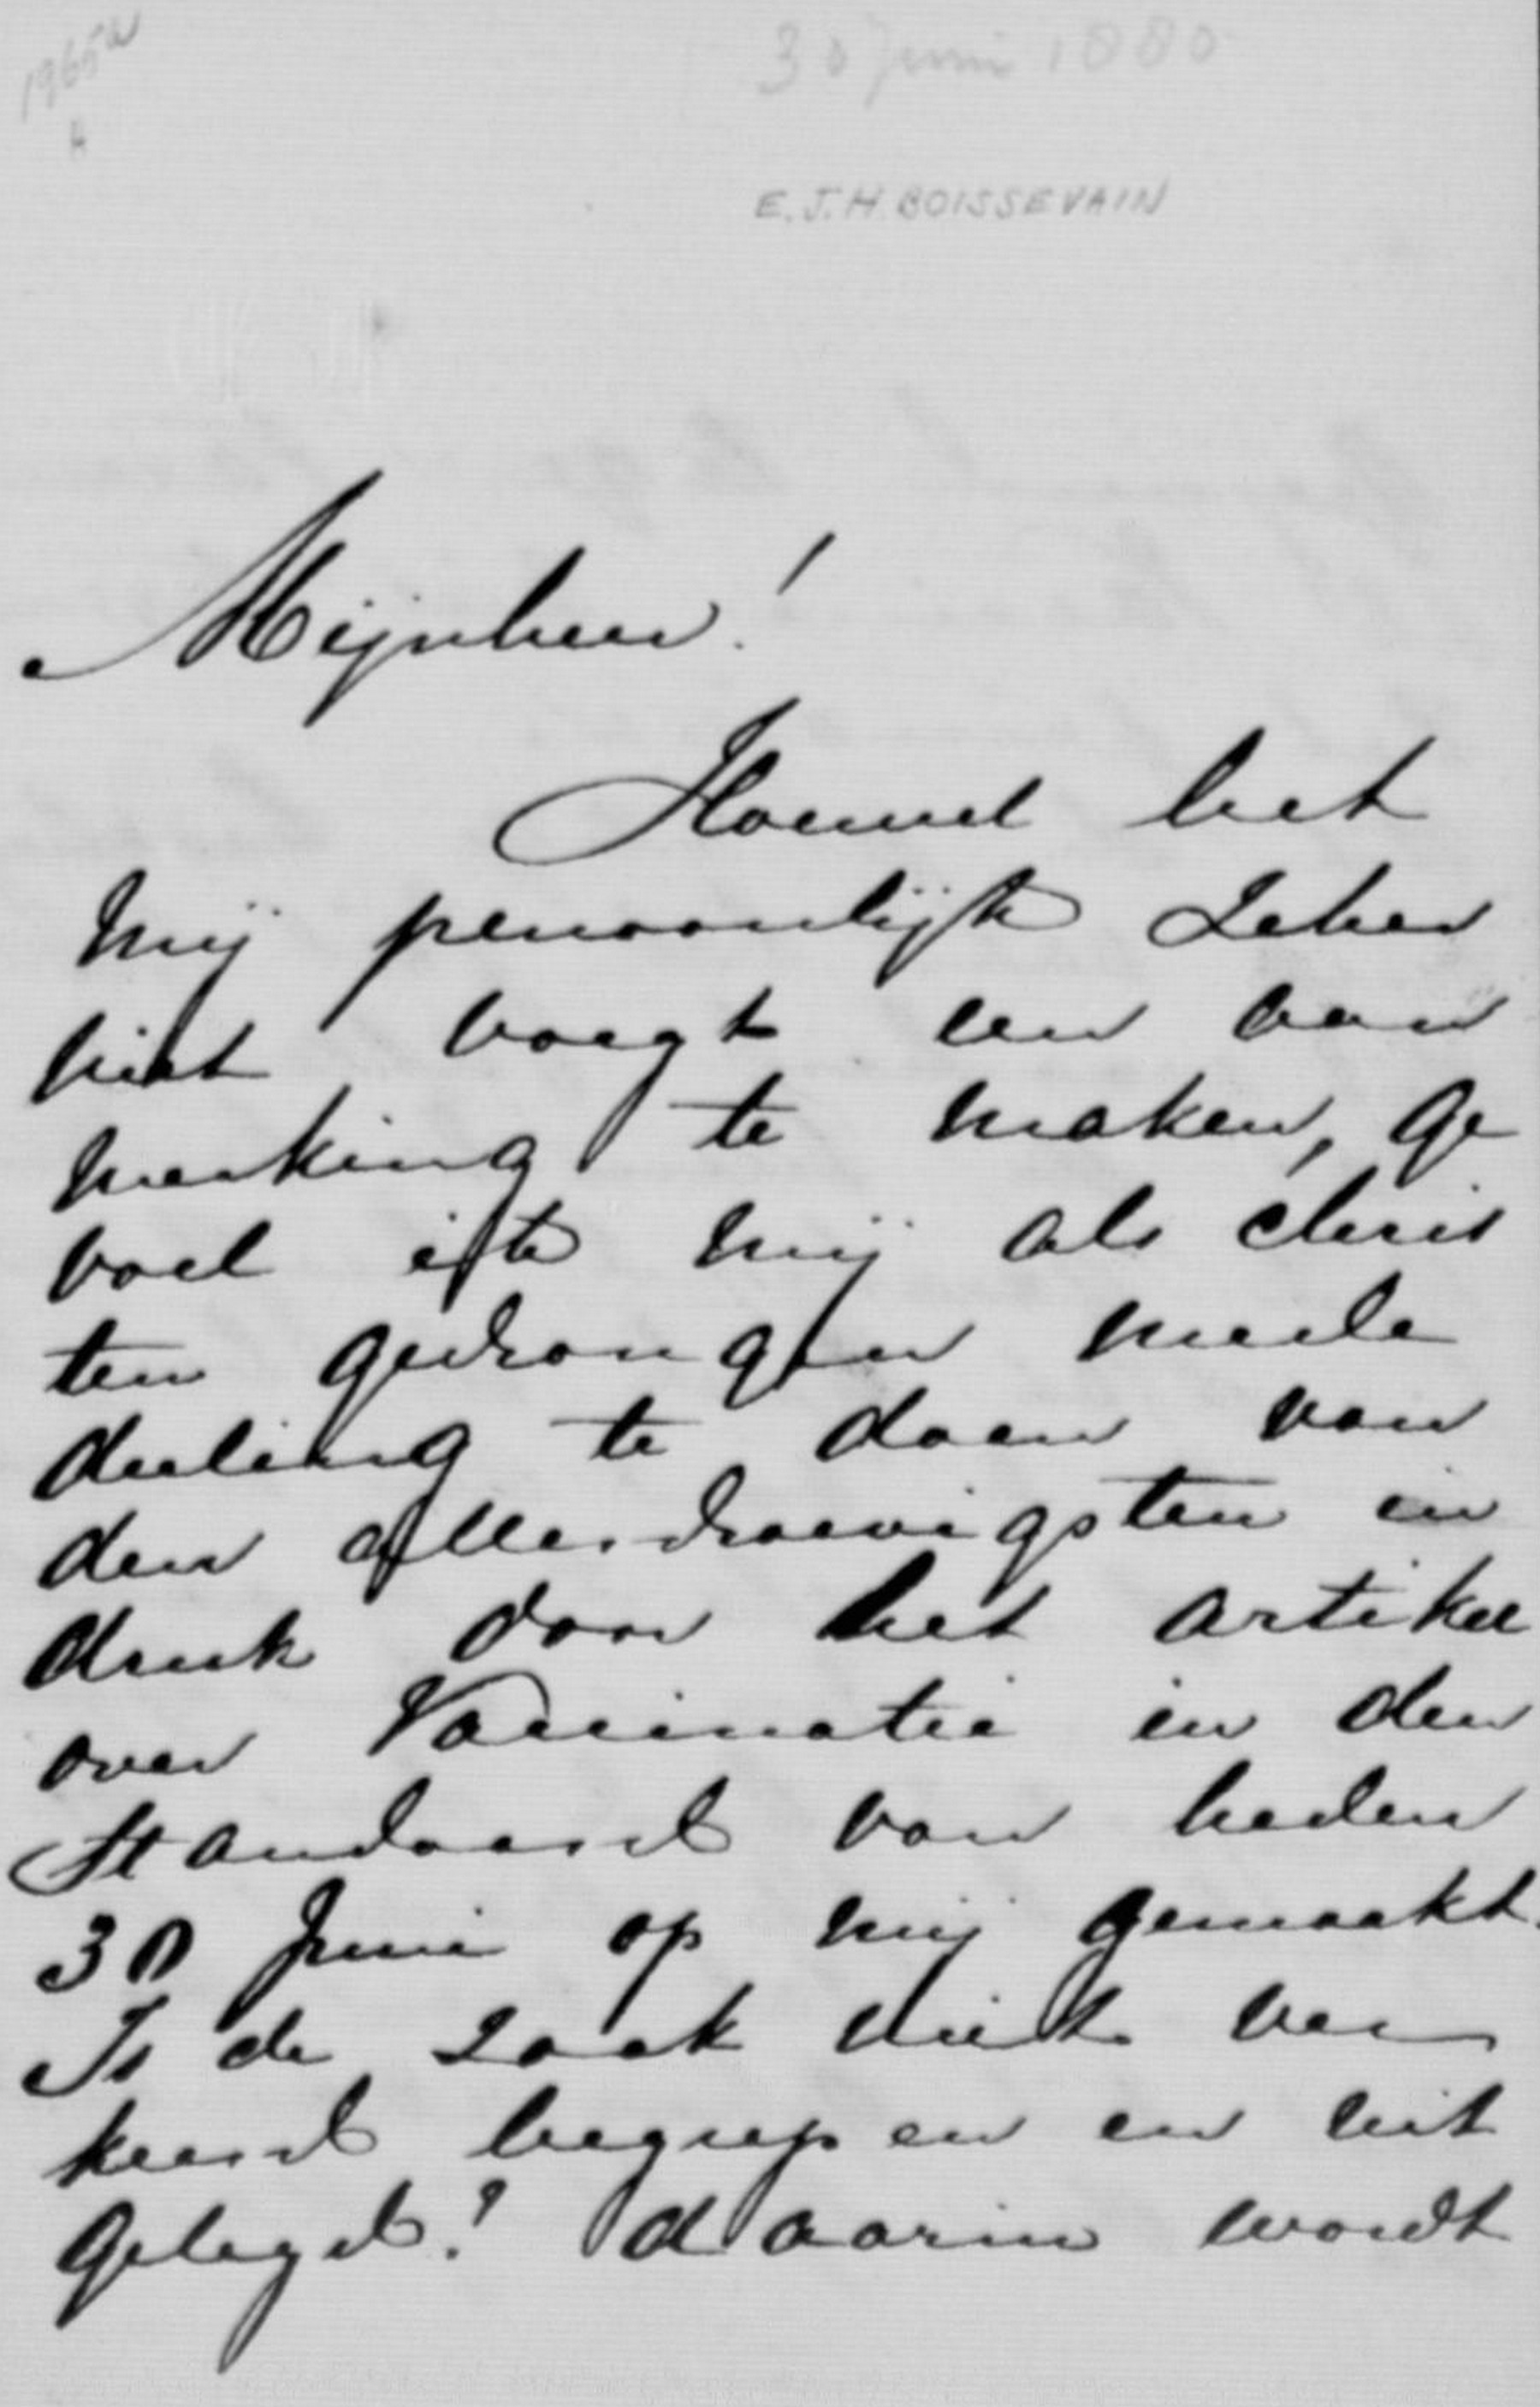 1965a
30 Juni 1880
E.J.H. BOISSEVAIN
Mijnheer!
Hoewel het
mij persoonlijk zeker
niet voegt een aan
merking te maken, ge
voel ik mij als chris
ten gedrongen mede
deeling te doen van
den allerdroevigsten in
druk door het artikel
over Vaccinatie in den
Standaard van heden
30 Juni op mij gemaakt.
Is de zaak niet ver
keerd begrepen en uit
gelegd? daarin wordt